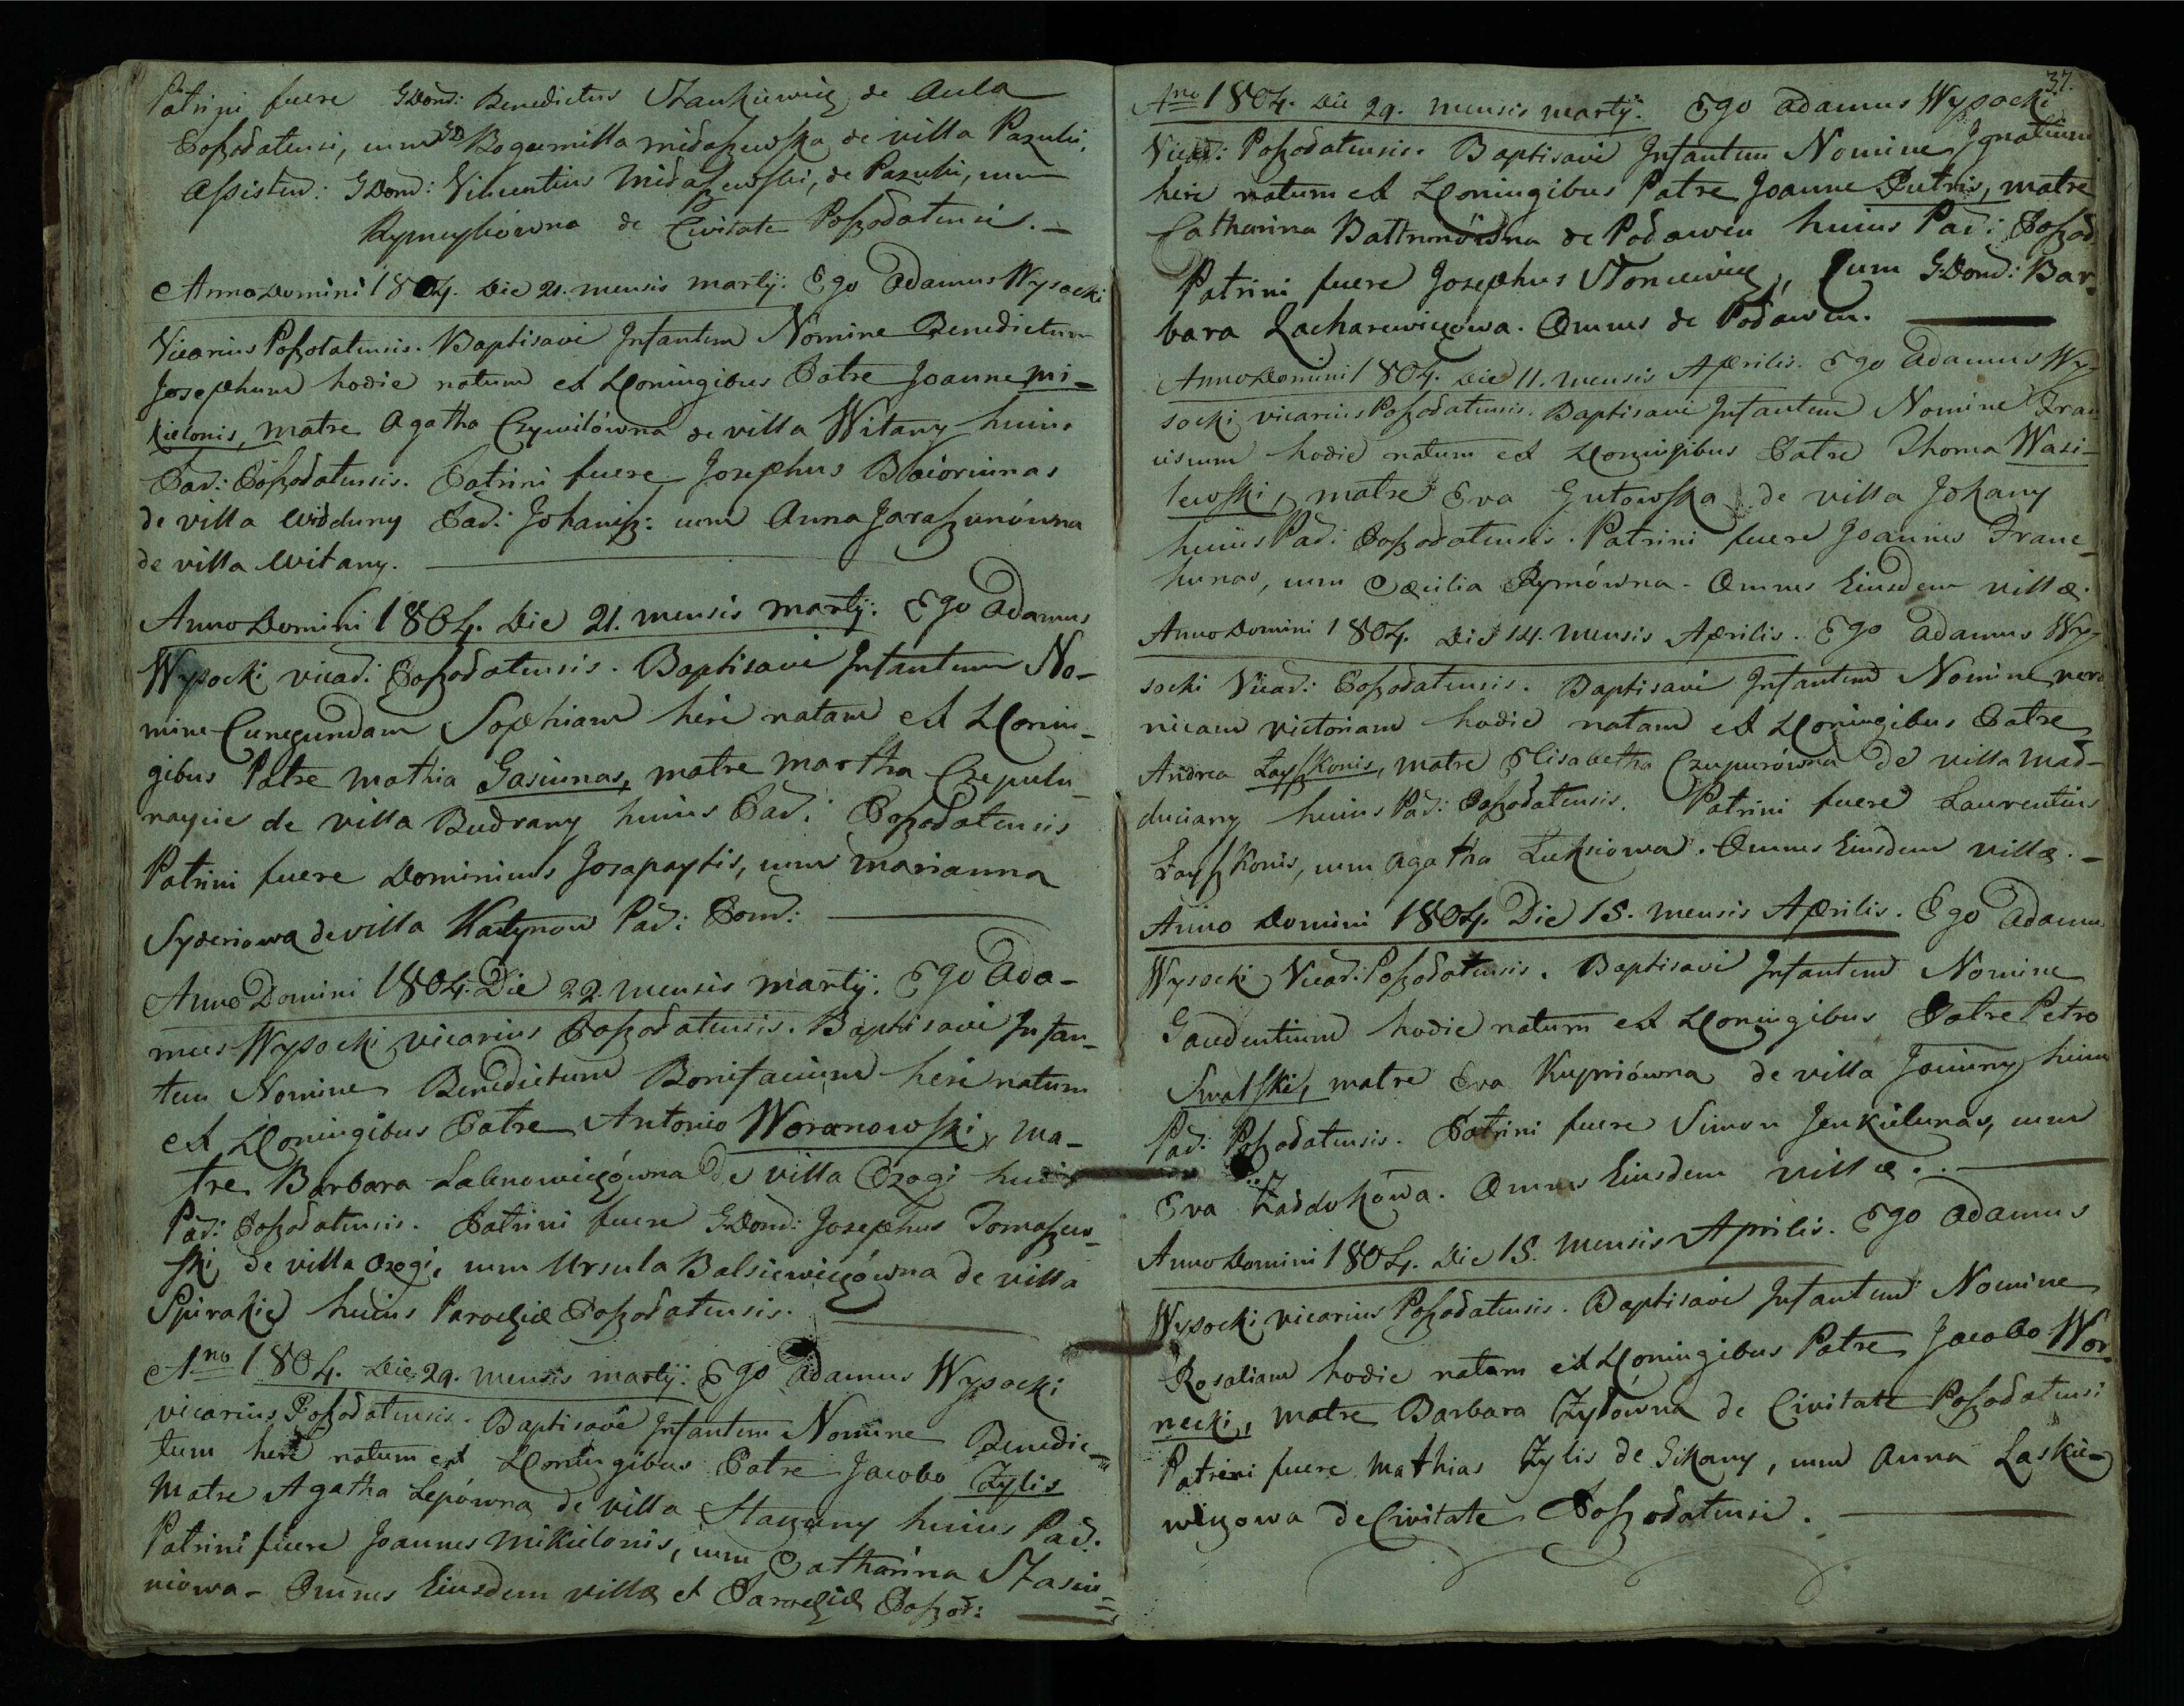 Patrini fuere GDom̃: Benedictus Stankiewicz de Aula
Poszodatensi, cum GD Bogumilla Midaszewska de villa Pazuki,
Assisten: GDom̃: Vincentius Midaszewski, de Pazuki, cum
de Civitate Poszodatensi. –
Anno Domini 1804. Die 21. mensis martij: Ego Adamus Wysocki
Vicarius Poszodatensis. Baptisavi Infantem Nomine Benedictum
Josephum hodie natum ex LConiugibus Patre Joanne Mi-
kielonis, matre Agatha Czywilówna de villa Witany huius
Par: Poszodatensis. Patrini fuere Josephus Baioriunas
de villa Widduny Par: Johanisz: cum Anna Jaraszunówna
de villa Witany.
Anno Domini 1804. Die 21. mensis martij: Ego Adamus
Wysocki vicar: Poszodatensis. Baptisavi Infantem No-
mine Cunegundam Sophiam heri natam ex LConiu-
gibus Patre Mathia Gasiunas, matre Martha Czepulu-
naycie de villa Budrany huius Par: Poszodatensis
Patrini fuere Dominicus Jozapaytis, cum Marianna
Syderiowa de villa Katynow Par: Pom̃:
Anno Domini 1804. Die 22. mensis martij: Ego Ada-
mus Wysocki vicarius Poszodatensis. Baptisavi Infan-
tem Nomine Benedictum Bonifacium heri natum
ex LConiugibus Patre Antonio Woronowski, ma-
tre Barbara Labnowiczówna de villa Ozogi huius
Par: Poszodatensis. Patrini fuere GDom̃: Josephus Tomaszew-
ski de villa Ozogi, cum Ursula Balsiewiczówna de villa
Spirakie huius Parochiæ Poszodatensis.
Ano 1804. Die 29. mensis martij: Ego Adamus Wysocki
vicarius Poszodatensis. Baptisavi Infantem Nomine Benedic-
tum heri natum ex LConiugibus Patre Jacobo Zylis
Matre Agatha Lepówna de villa Staczuny huius Par.
Patrini fuere Joannes Mikielonis, cum Catharina Stasiu-
niowa – Omnes Eiusdem villæ et Parochiæ Poszod:
37.
Ano 1804. Die 29. mensis martij: Ego Adamus Wysocki
Vicar: Poszodatensis. Baptisavi Infantem Nomine Ignatium
heri natum ex LConiugibus Patre Joanne Putris, matre
Catharina Battrunówna de Podawin huius Par: Poszod
Patrini fuere Josephus Stoncewicz, Cum GDom̃: Bar-
bara Zacharewiczowa. Omnes de Podawin.
Anno Domini 1804. Die 11. mensis Aprilis. Ego Adamus Wy-
socki vicarius Poszodatensis. Baptisavi Infantem Nomine Fran
ciscum hodie natum ex LConiugibus Patre Thoma Wasi-
lewski, matre Eva Gutowska de villa Jokany
huius Par: Poszodatensis. Patrini fuere Joannes Franc-
kunas, cum Cæcilia Rymówna – Omnes Eiusdem villæ.
Anno Domini 1804. Die 14. Mensis Aprilis. Ego Adamus Wy-
socki Vicar: Poszodatensis. Baptisavi Infantem Nomine Vero
nicam Victoriam hodie natam ex LConiugibus Patre
Andrea Layszkonis, matre Elisabetha Czupurówna de villa Mad-
duciany huius Par: Poszodatensis. Patrini fuere Laurentius
Layszkonis, cum Agatha Luksiowa. Omnes Eiusdem villæ. –
Anno Domini 1804. Die 15. mensis Aprilis. Ego Adamus
Wysocki Vicar: Poszodatensis. Baptisavi Infantem Nomine
Gaudentium hodie natum ex LConiugibus Patre Petro
Smalski, matre Eva Kupriówna de villa Jociuny huius
Par: Poszodatensis. Patrini fuere Simon Jenkielunas, cum
Eva Zaddokówa. Omnes Eiusdem villæ.
Anno Domini 1804. Die 15. Mensis Aprilis. Ego Adamus
Wysocki vicarius Poszodatensis. Baptisavi Infantem Nomine
Rosaliam hodie natam ex LConiugibus Patre Jacobo Wor-
necki, matre Barbara Zylówna de Civitate Poszodatensi
Patrini fuere Mathias Zylis de Gikany, cum Anna Laskie-
wiczowa de Civitate Poszodatensi.